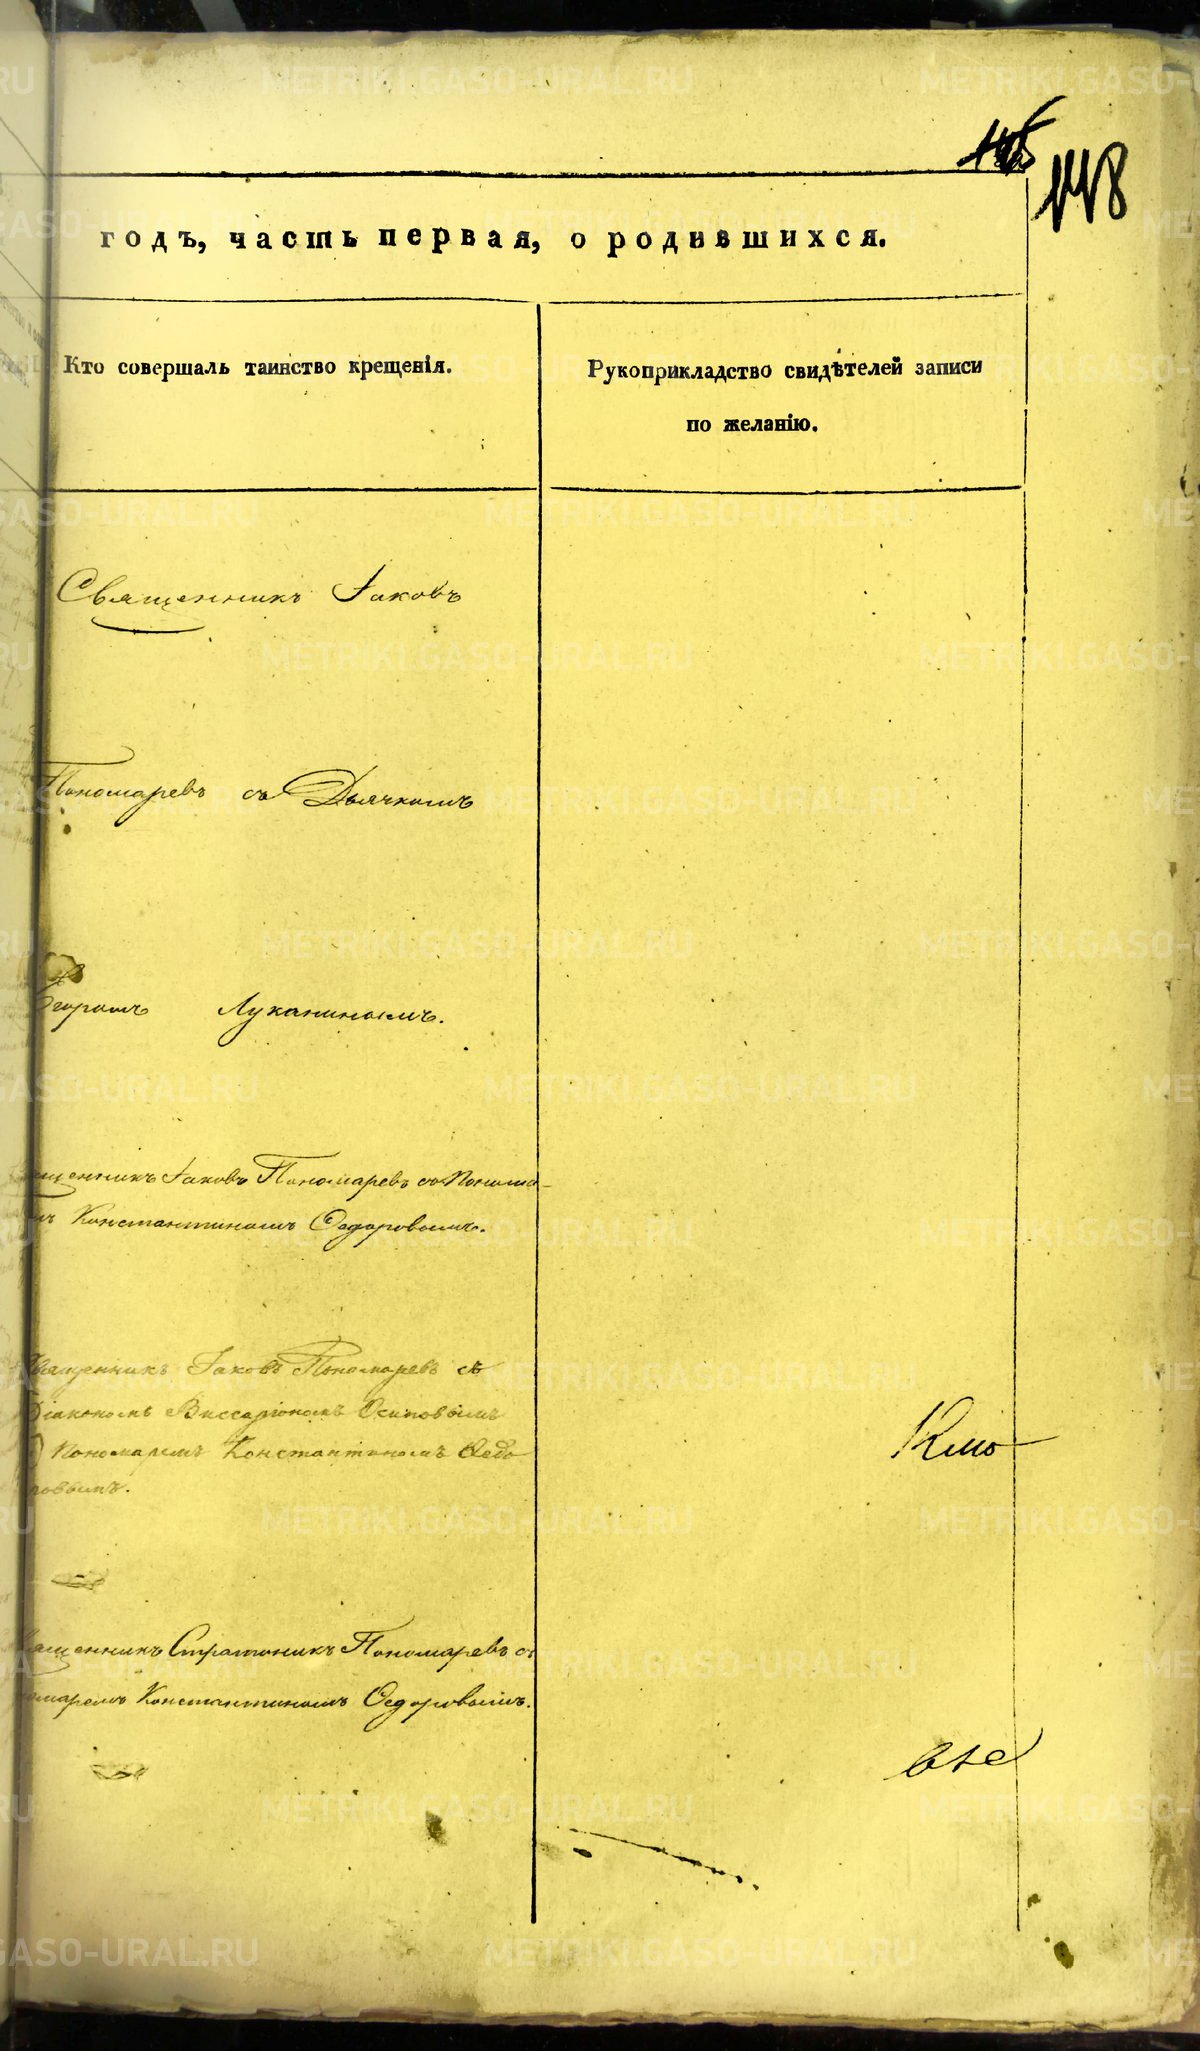 118
годъ, часть первая, о родившихся.
Кто совершалъ таинство крещенія.
Рукоприкладство свидѣтелей записи
по желанію.
Священникъ Іаковъ
Пономаревъ съ Дьячкомъ
Егоромъ Луканинымъ.
щенникъ Іаковъ Пономаревъ съ Понома-
мъ Константиномъ Ѳедоровымъ.
Священникъ Іаковъ Пономаревъ съ
Діакономъ Виссаріономъ Осиповымъ
Пономаремъ Константиномъ Ѳедо
ровымъ.
ященникъ Стратоникъ Пономаревъ съ
номаремъ Константиномъ Ѳедоровымъ.
METRIKI.GASO-URAL.RU